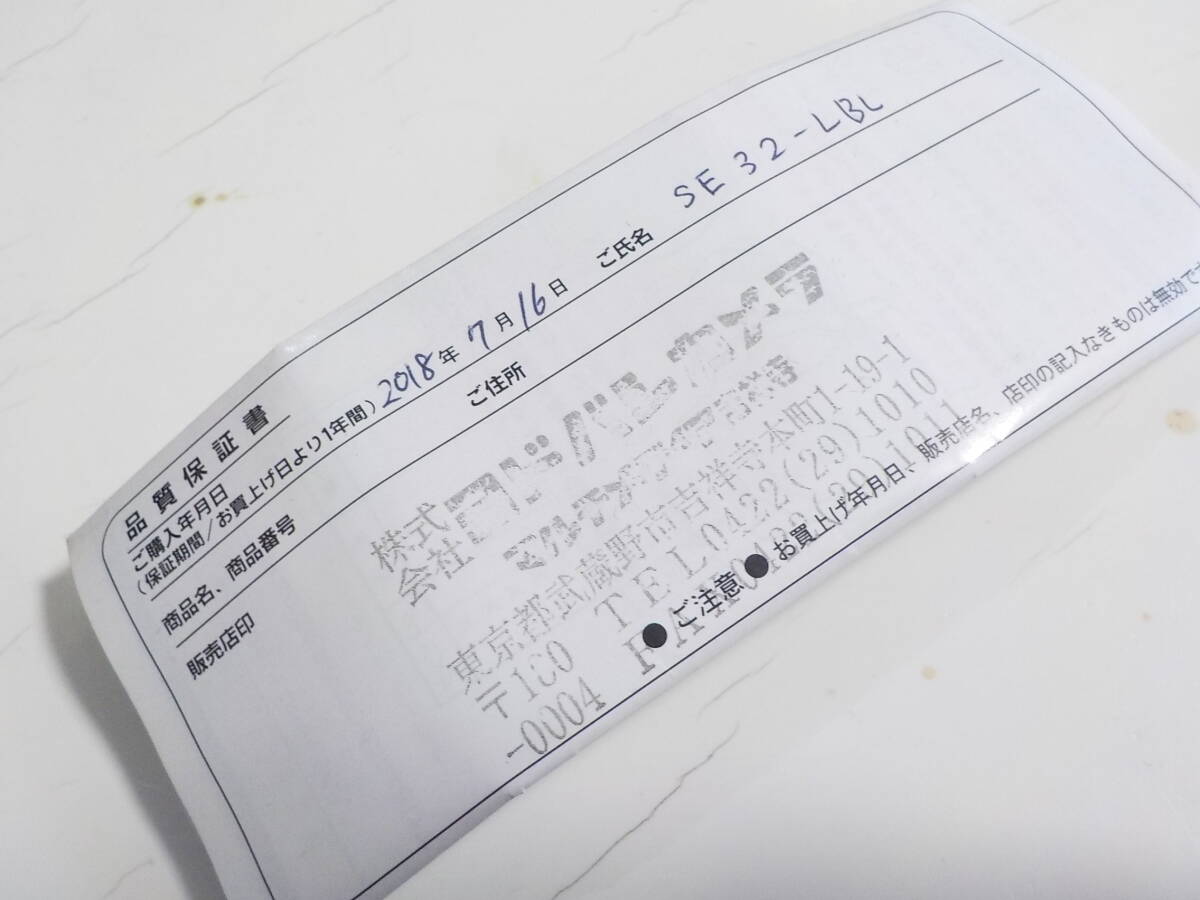 品質保証書
ご購入年月日 2018年 7月 16日 ご氏名
(保証期間/お買上げ日より1年間)
商品名、商品番号 ご住所 SE 32-LBL
販売店印
株式会社 ヨドバシカメラ
マルチメディア吉祥寺
東京都武蔵野市吉祥寺本町1-19-1
〒180-0004
TEL0422(29)1010
FAX0422(29)1011
●ご注意● お買上げ年月日、販売店名、店印の記入なきものは無効です